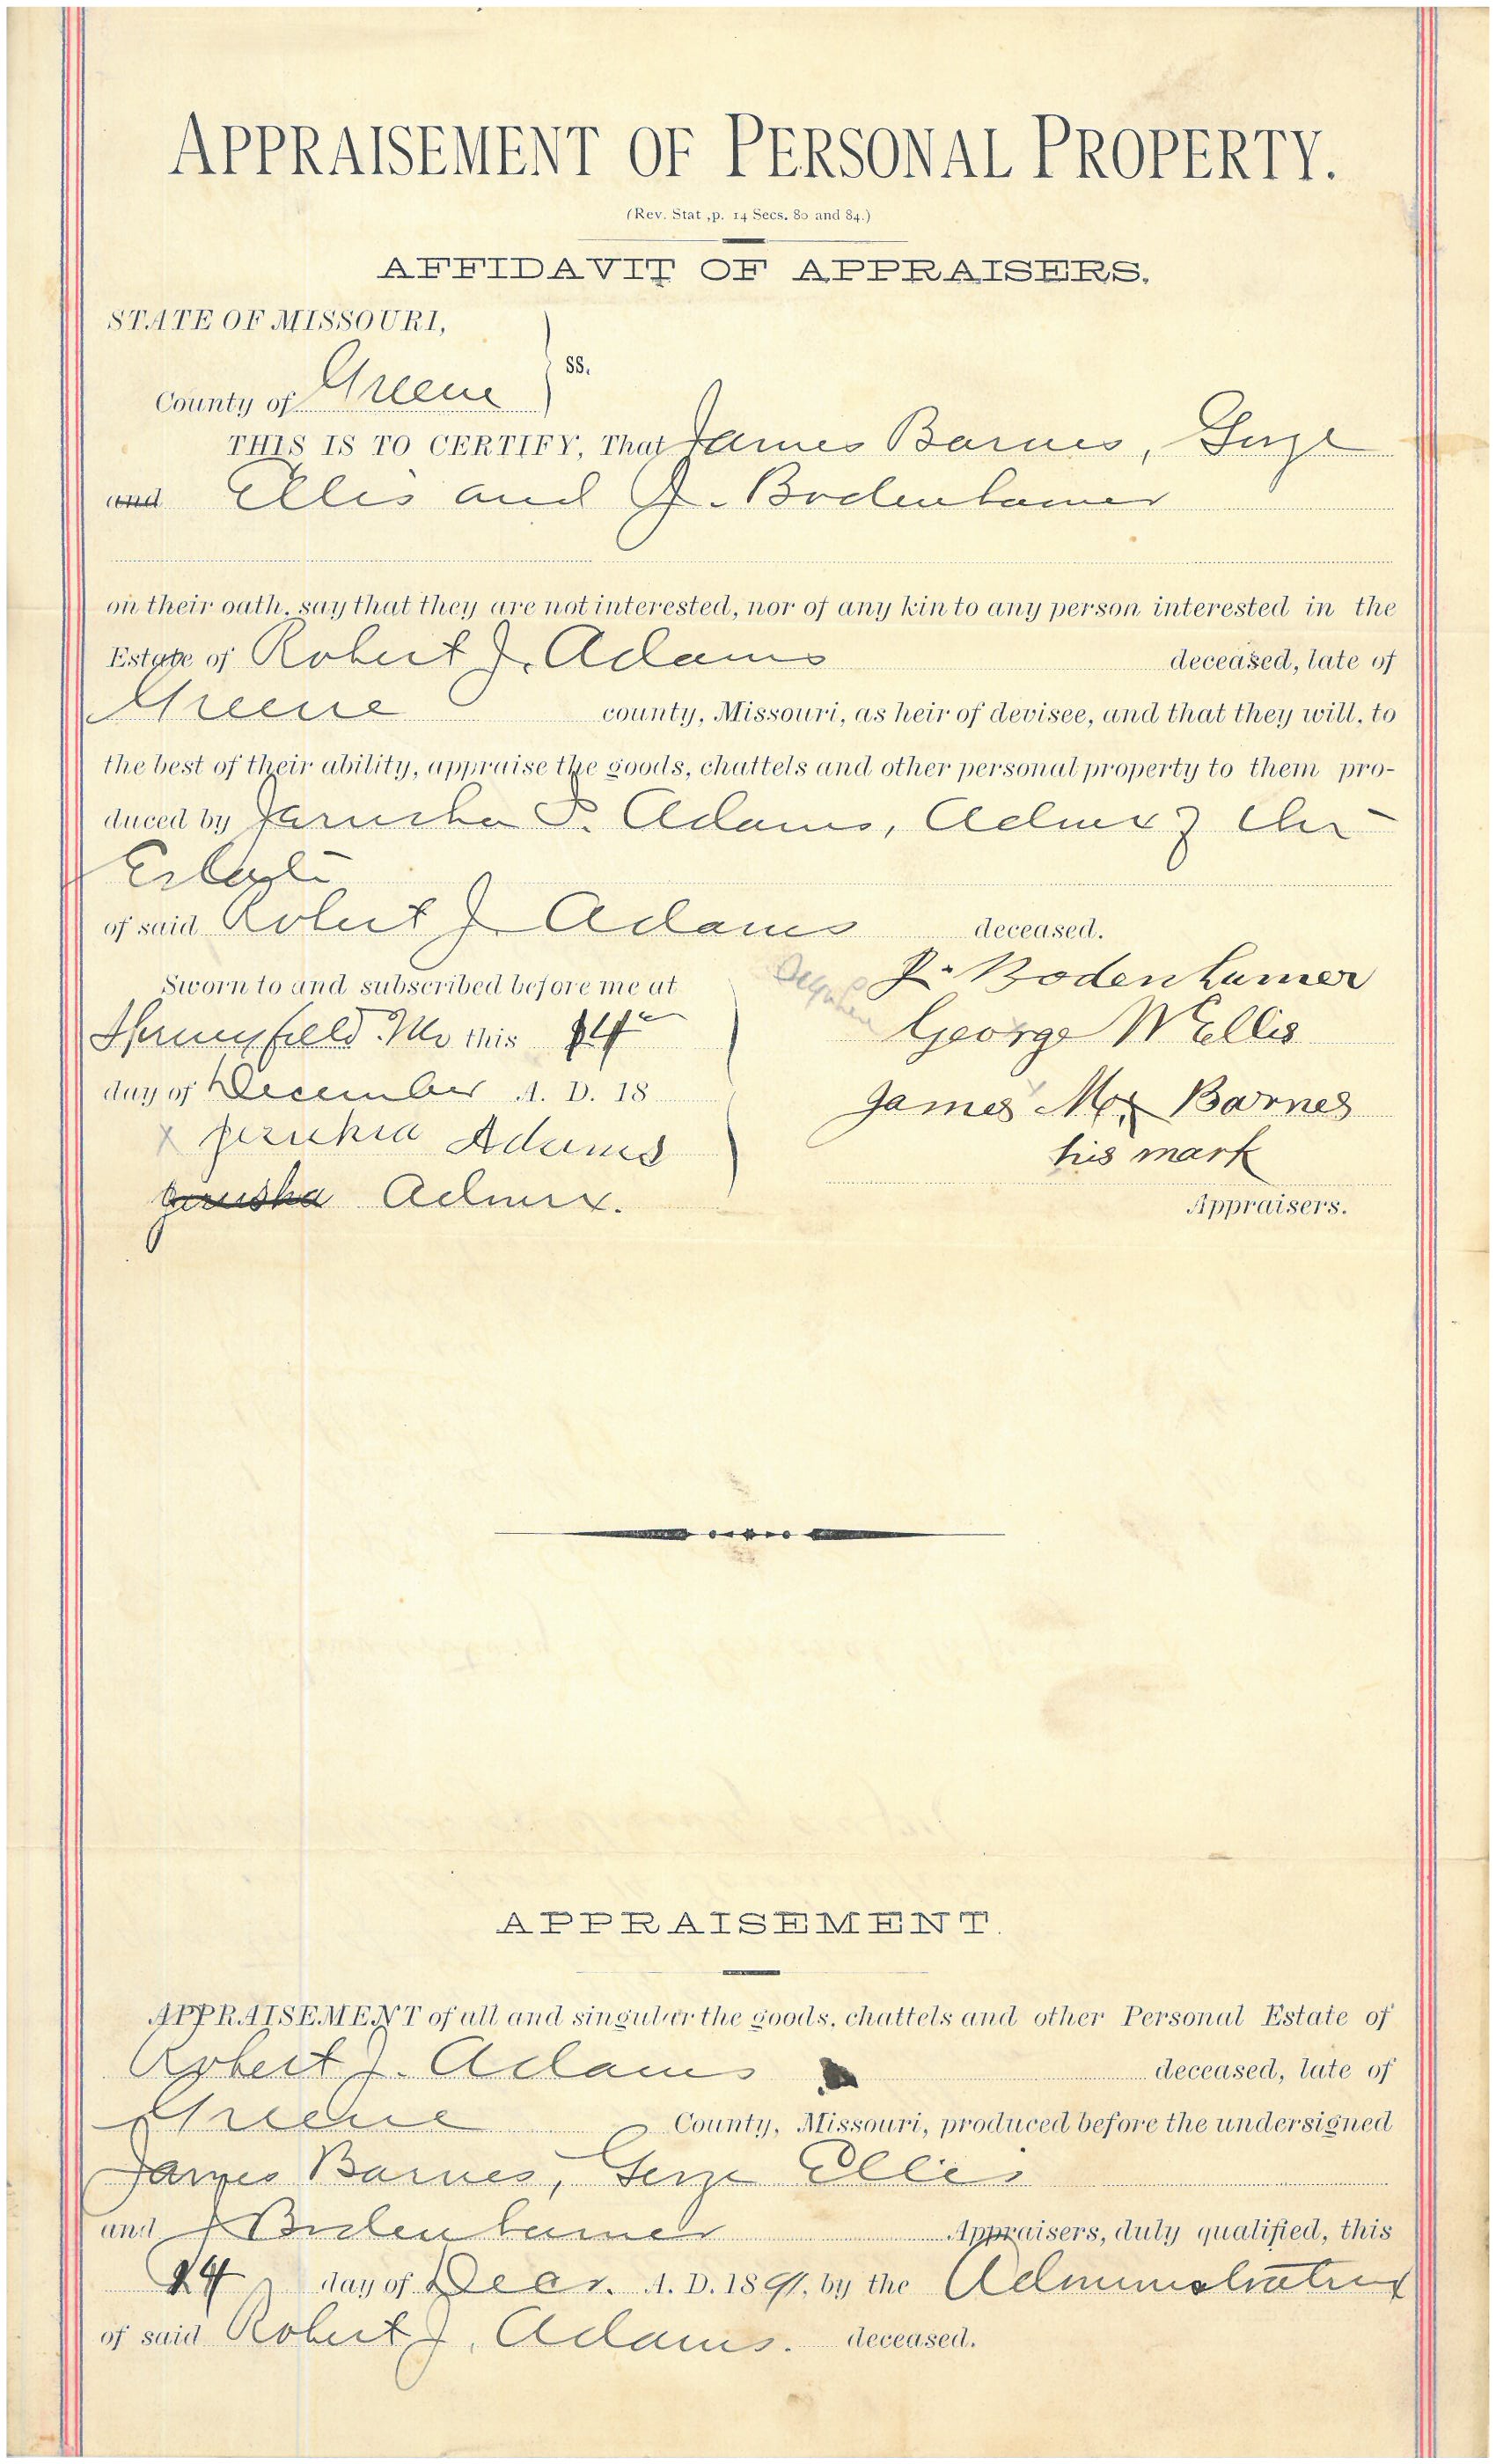 APPRAISEMENT OF PERSONAL PROPERTY.
(Rev. Stat ,p. 14 Secs. 80 and 84.)
AFFIDAVIT OF APPRAISERS.
STATE OF MISSOURI,
ss.
County of Greene
THIS IS TO CERTIFY, That James Barnes, George
and Ellis and J. Bodenhamer
on their oath, say that they are not interested, nor of any kin to any person interested in the
Estate of Robert J. Adams deceased, late of
Greene county, Missouri, as heir of devisee, and that they will, to
the best of their ability, appraise the goods, chattels and other personal property to them pro-
duced by Jarusha P. Adams, Admrx of the
Estate
of said Robert J. Adams deceased.
Sworn to and subscribed before me at
Springfield Mo this 14
day of December A. D. 18
x Jerushia Adams
Jerusha Admrx.
J. Bodenhamer
George W Ellis
James M x Barnes
his mark
Appraisers.
APPRAISEMENT.
APPRAISEMENT of all and singular the goods, chattels and other Personal Estate of
Robert J. Adams deceased, late of
Greene County, Missouri, produced before the undersigned
James Barnes, George Ellis
and J Bodenhamer Appraisers, duly qualified, this
14 day of Decr. A. D. 1891, by the Administratrix
of said Robert J. Adams. deceased.